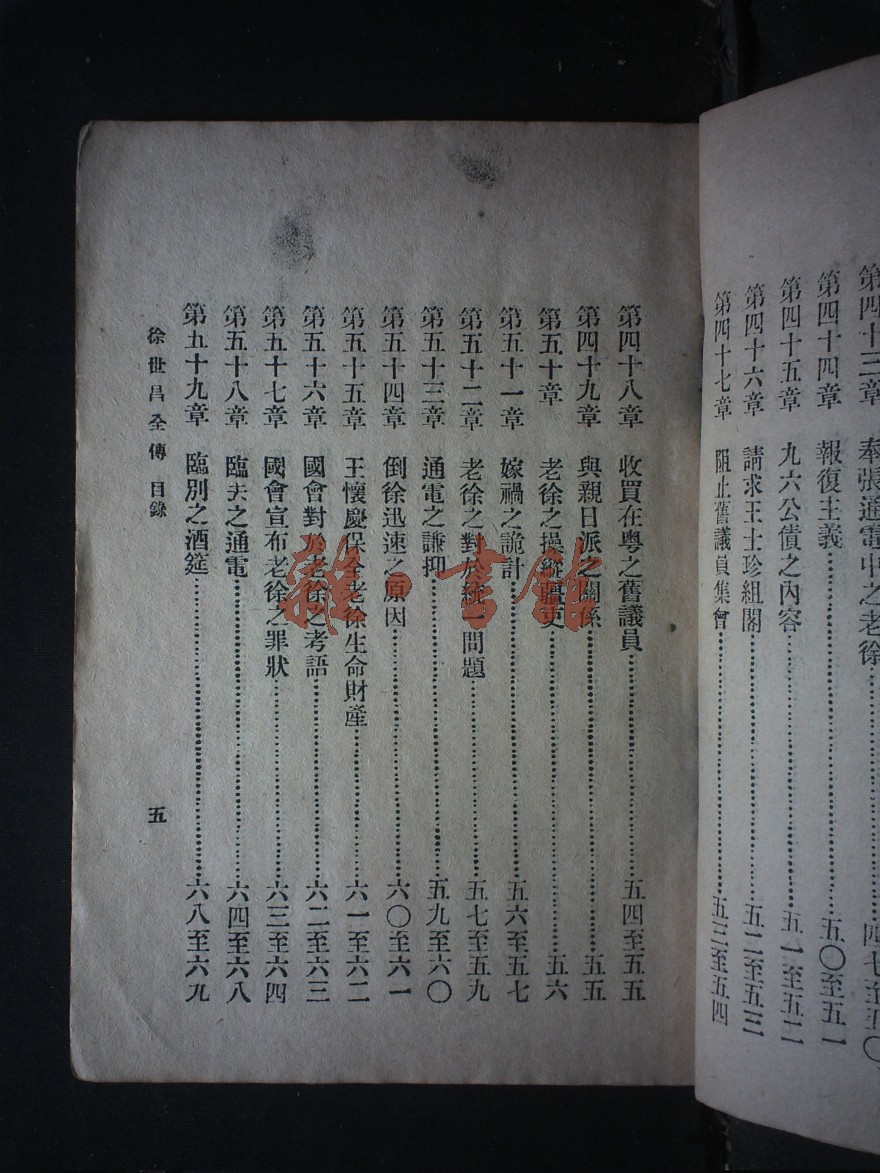 第四十三章　奉張通電中之老徐……四七至五〇
第四十四章　報復主義……五〇至五一
第四十五章　九六公債之內容……五一至五二
第四十六章　請求王士珍組閣……五二至五三
第四十七章　阻止舊議員集會……五三至五四
第四十八章　收買在粤之舊議員……五四至五五
第四十九章　與親日派之關係……五五
第五十章　老徐之操縱疆吏……五六
第五十一章　嫁禍之詭計……五六至五七
第五十二章　老徐之對於統一問題……五七至五九
第五十三章　通電之謙抑……五九至六〇
第五十四章　倒徐迅速之原因……六〇至六一
第五十五章　王懷慶保全老徐生命財產……六一至六二
第五十六章　國會對於老徐之考語……六二至六三
第五十七章　國會宣布老徐之罪狀……六三至六四
第五十八章　臨去之通電……六四至六八
第五十九章　臨別之酒筵……六八至六九
徐世昌全傳 目錄　五
雜·書館